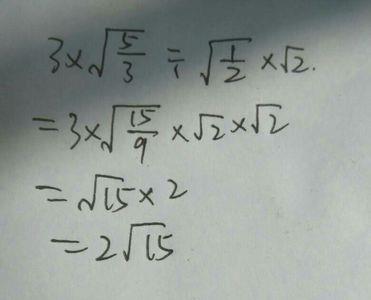 3×√(5/3) ÷ √(1/2) ×√2.
=3×√(15/9) ×√2×√2
=√15×2
=2√15